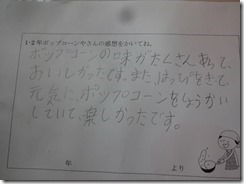 1・2年ポップコーンやさんの感想をかいてね。
ポップコーンの味がたくさんあって、
おいしかったです。また、はっぴをきて、
元気に、ポップコーンをしょうかい
していて、楽しかったです。
年　より